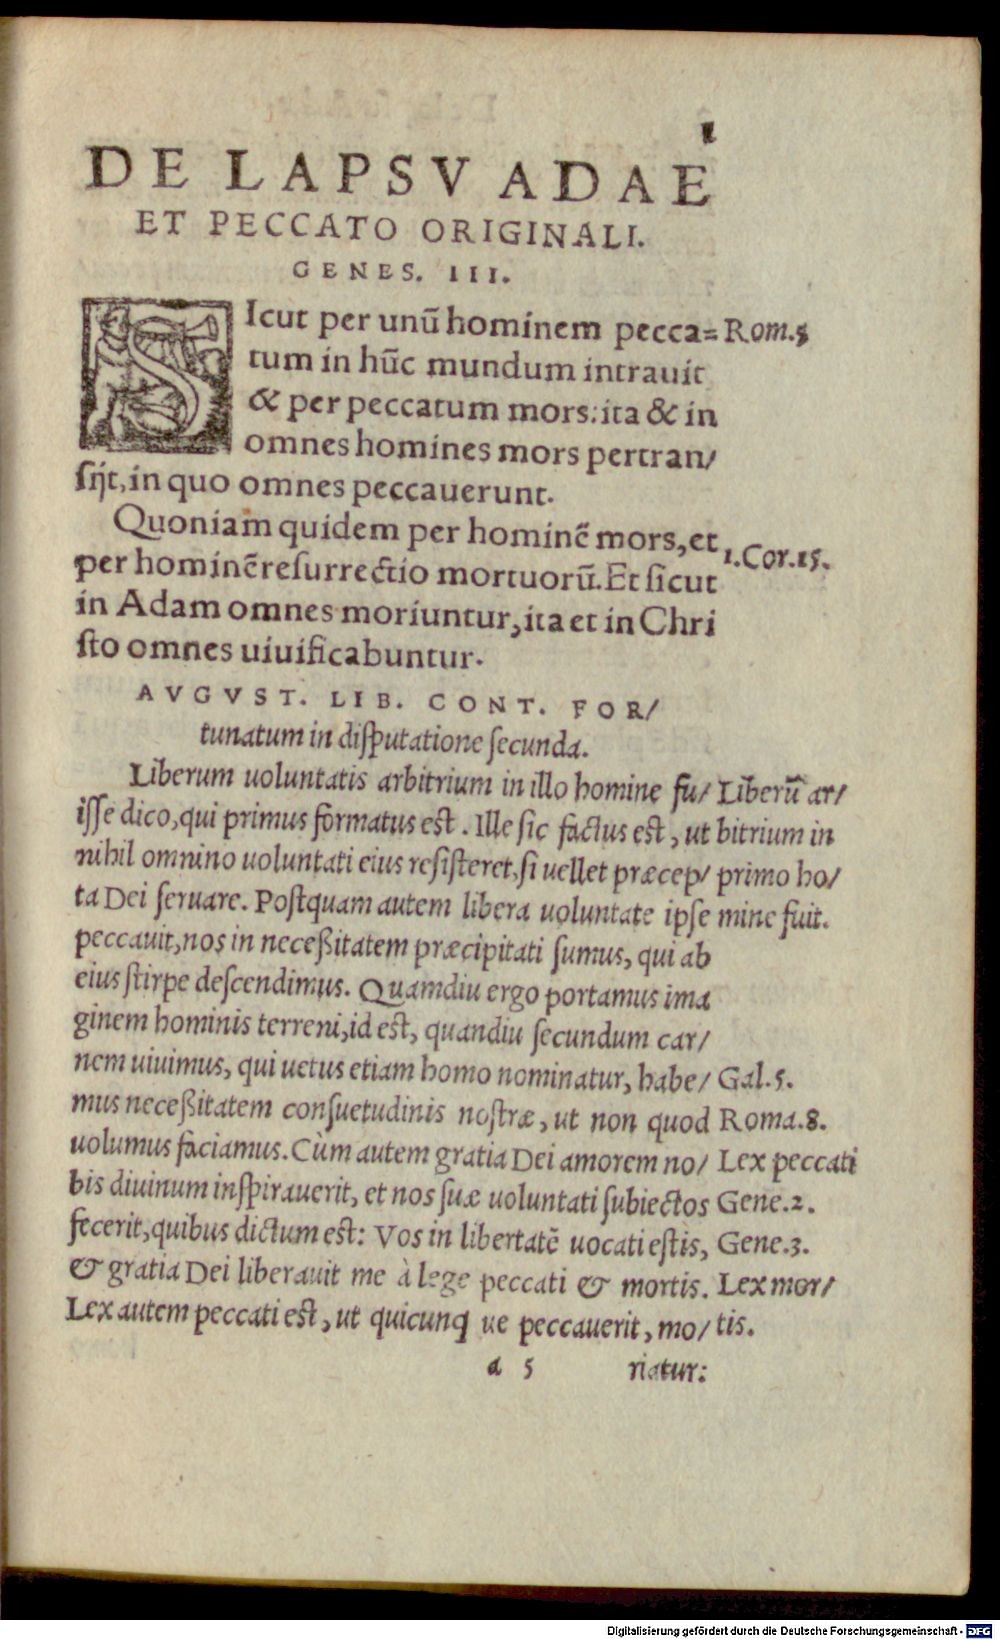 1
DE LAPSV ADAE
ET PECCATO ORIGINALI.
GENES. III.
SIcut per unũ hominem pecca= Rom.5
tum in hũc mundum intrauit
& per peccatum mors: ita & in
omnes homines mors pertran/
ſijt, in quo omnes peccauerunt.
Quoniam quidem per hominẽ mors, et 1.Cor.15.
per hominẽ reſurrectio mortuorũ. Et ſicut
in Adam omnes moriuntur, ita et in Chri
ſto omnes uiuificabuntur.
AVGVST. LIB. CONT. FOR/
tunatum in diſputatione ſecunda.
Liberum uoluntatis arbitrium in illo homine fu/ Liberũ ar/
iſſe dico, qui primus formatus eſt. Ille ſic factus eſt, ut bitrium in
nihil omnino uoluntati eius reſiſteret, ſi uellet præcep/ primo ho/
ta Dei ſeruare. Poſtquam autem libera uoluntate ipſe mine fuit.
peccauit, nos in neceßitatem præcipitati ſumus, qui ab
eius ſtirpe deſcendimus. Quamdiu ergo portamus ima
ginem hominis terreni, id eſt, quandiu ſecundum car/
nem uiuimus, qui uetus etiam homo nominatur, habe/ Gal.5.
mus neceßitatem conſuetudinis noſtræ, ut non quod Roma.8.
uolumus faciamus. Cùm autem gratia Dei amorem no/ Lex peccati
bis diuinum inſpirauerit, et nos ſuæ uoluntati ſubiectos Gene.2.
fecerit, quibus dictum eſt: Vos in libertatẽ uocati eſtis, Gene.3.
& gratia Dei liberauit me à lege peccati & mortis. Lex mor/
Lex autem peccati eſt, ut quicunq ue peccauerit, mo/ tis.
a 5 riatur:
Digitalisierung gefördert durch die Deutsche Forschungsgemeinschaft - DFG